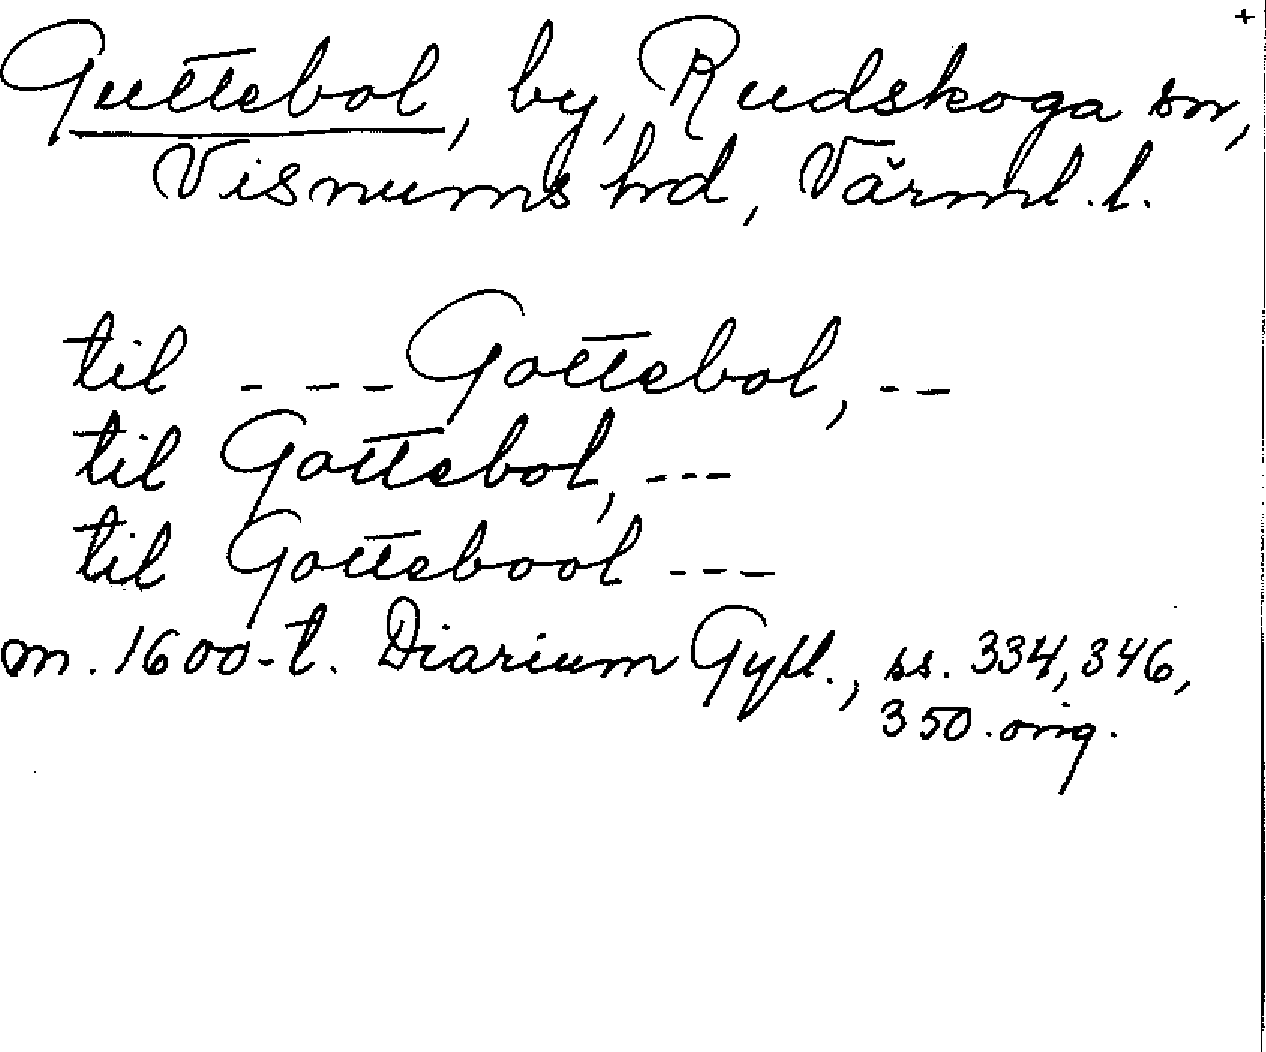 +
Guttebol, by, Rudskoga sn,
Visnums hrd, Värml. l.
til - - - Gottebol, - -
til Gottebol, - - -
til Gottebool - - -
m. 1600-t. Diarium Gyll., ss. 334, 346,
350. orig.